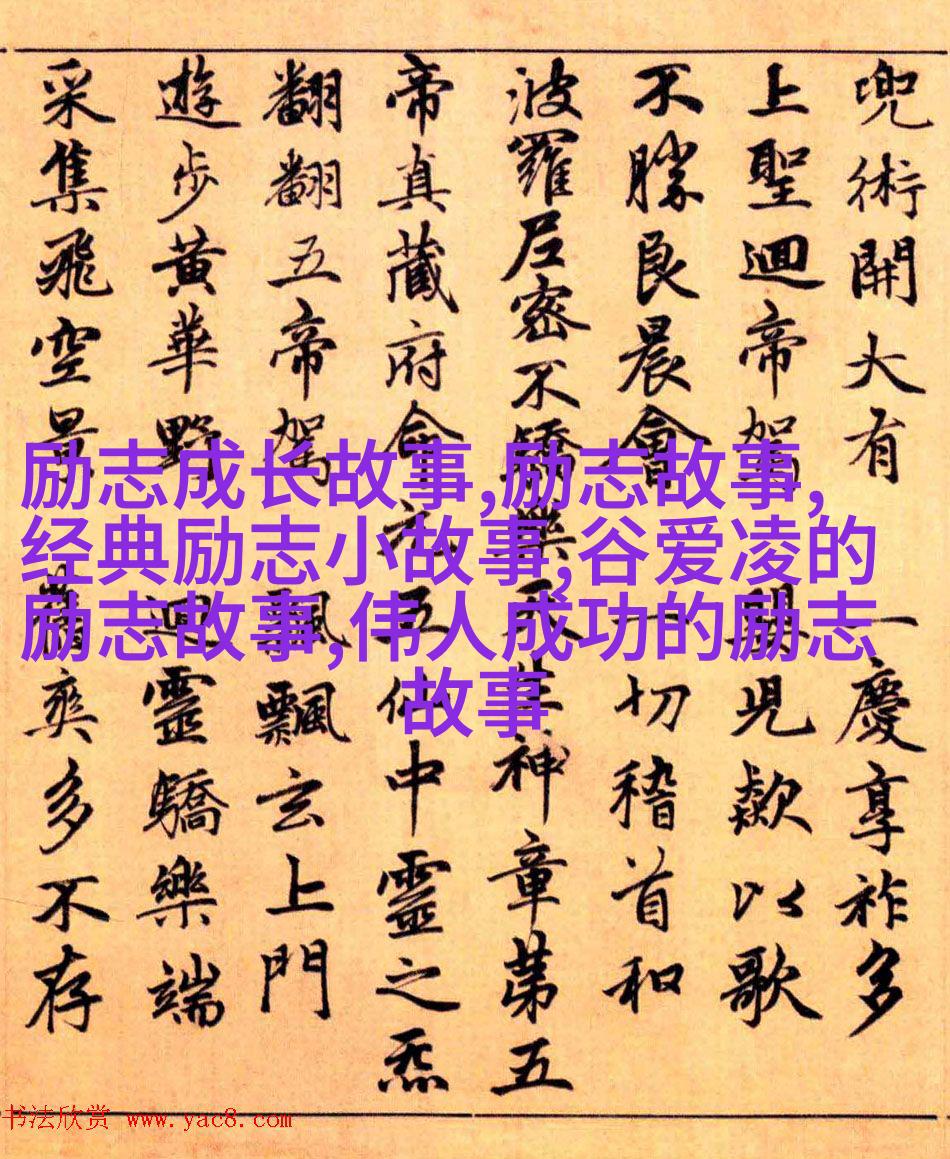 兜術開大有一慶享祚多
上聖迴帝駕與兒歎以歌
不勝良晨會一切稽首和
波羅尼密不驕樂天其神章第五
帝真藏府命元五仙中靈之炁
翩翩五帝駕飄飄玄上門
遊步黃華野迴靈驕樂端
采集飛空景爽多不存
励志成长故事,励志故事,
经典励志小故事,谷爱凌的
励志故事,伟人成功的励志
故事
书法欣赏 www.yac8.com